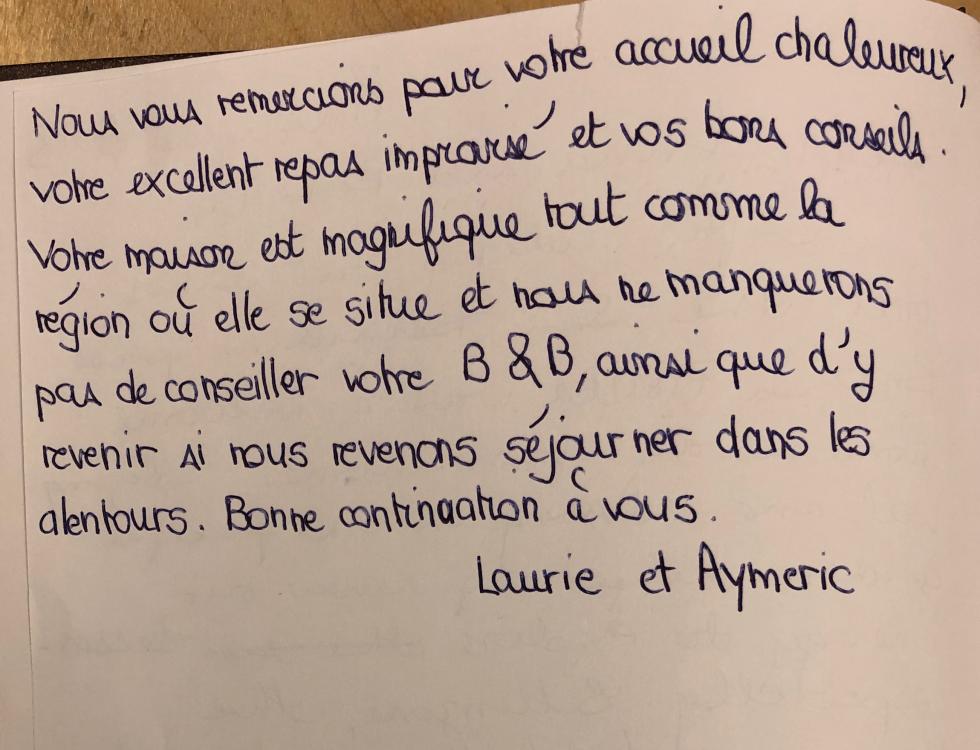 Nous vous remercions pour votre accueil chaleureux,
votre excellent repas improvisé et vos bons conseils.
Votre maison est magnifique tout comme la
région où elle se situe et nous ne manquerons
pas de conseiller votre B & B, ainsi que d'y
revenir si nous revenons séjourner dans les
alentours. Bonne continuation à vous.
Laurie et Aymeric